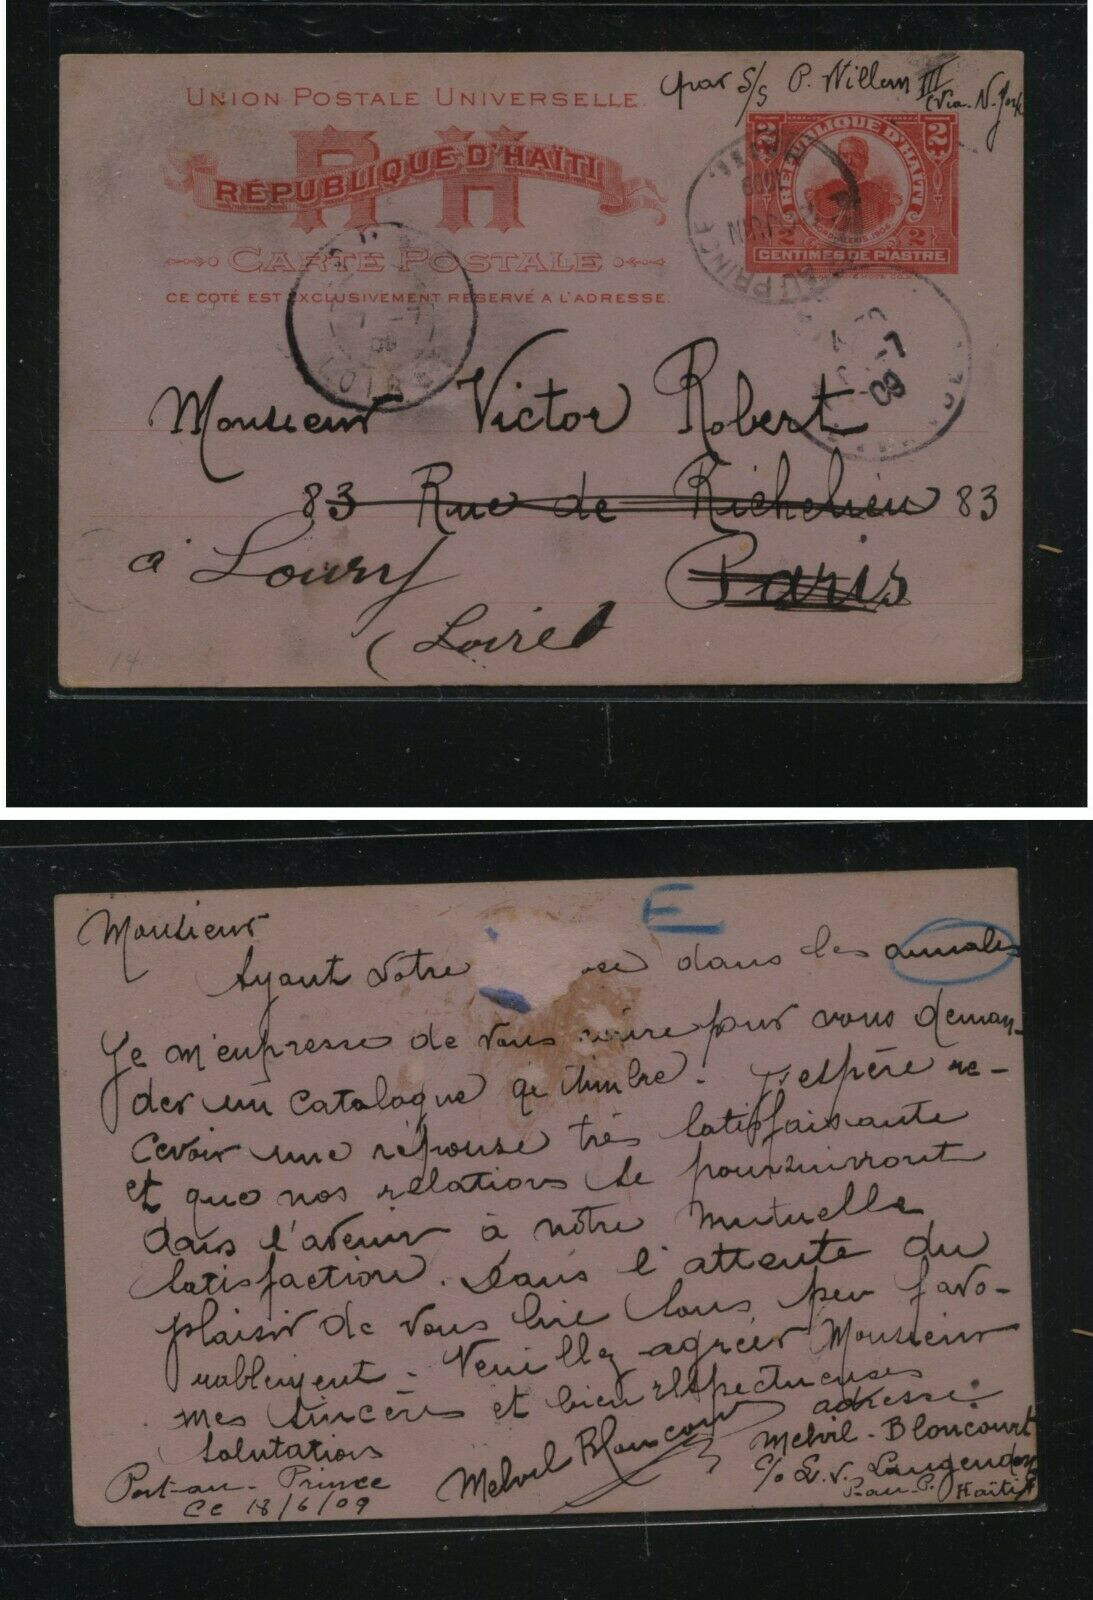 par S/S P. Willem III
(via. N. York
UNION POSTALE UNIVERSELLE.
RH
RÉPUBLIQUE D'HAÏTI
CARTE POSTALE
CE COTÉ EST EXCLUSIVEMENT RÉSERVÉ A L'ADRESSE.
2 2
REPUBLIQUE D'HAITI
2 2
CENTIMES DE PIASTRE
PRINCE
JUIN
7 09
LOIRET
Monsieur Victor Robert
83 Rue de Richelieu 83
à Loury Paris
(Loiret
14
E
Monsieur
Ayant votre dans les annales
Je m'empresse de vous pour vous deman-
der un catalogue de timbre. J'espère re-
cevoir une réponse très satisfaisante
et que nos relations se poursuivront
dans l'avenir à nôtre mutuelle
satisfaction. Dans l'attente du
plaisir de vous lire sous peu favo-
rablement. Veuillez agréer Monsieur
mes sincères et bien respectueuses
salutations
adresse:
Melvil Bloncourt
Melvil-Bloncourt
c/o
P-au-P. Haïti
Port-au-Prince
ce 18/6/09